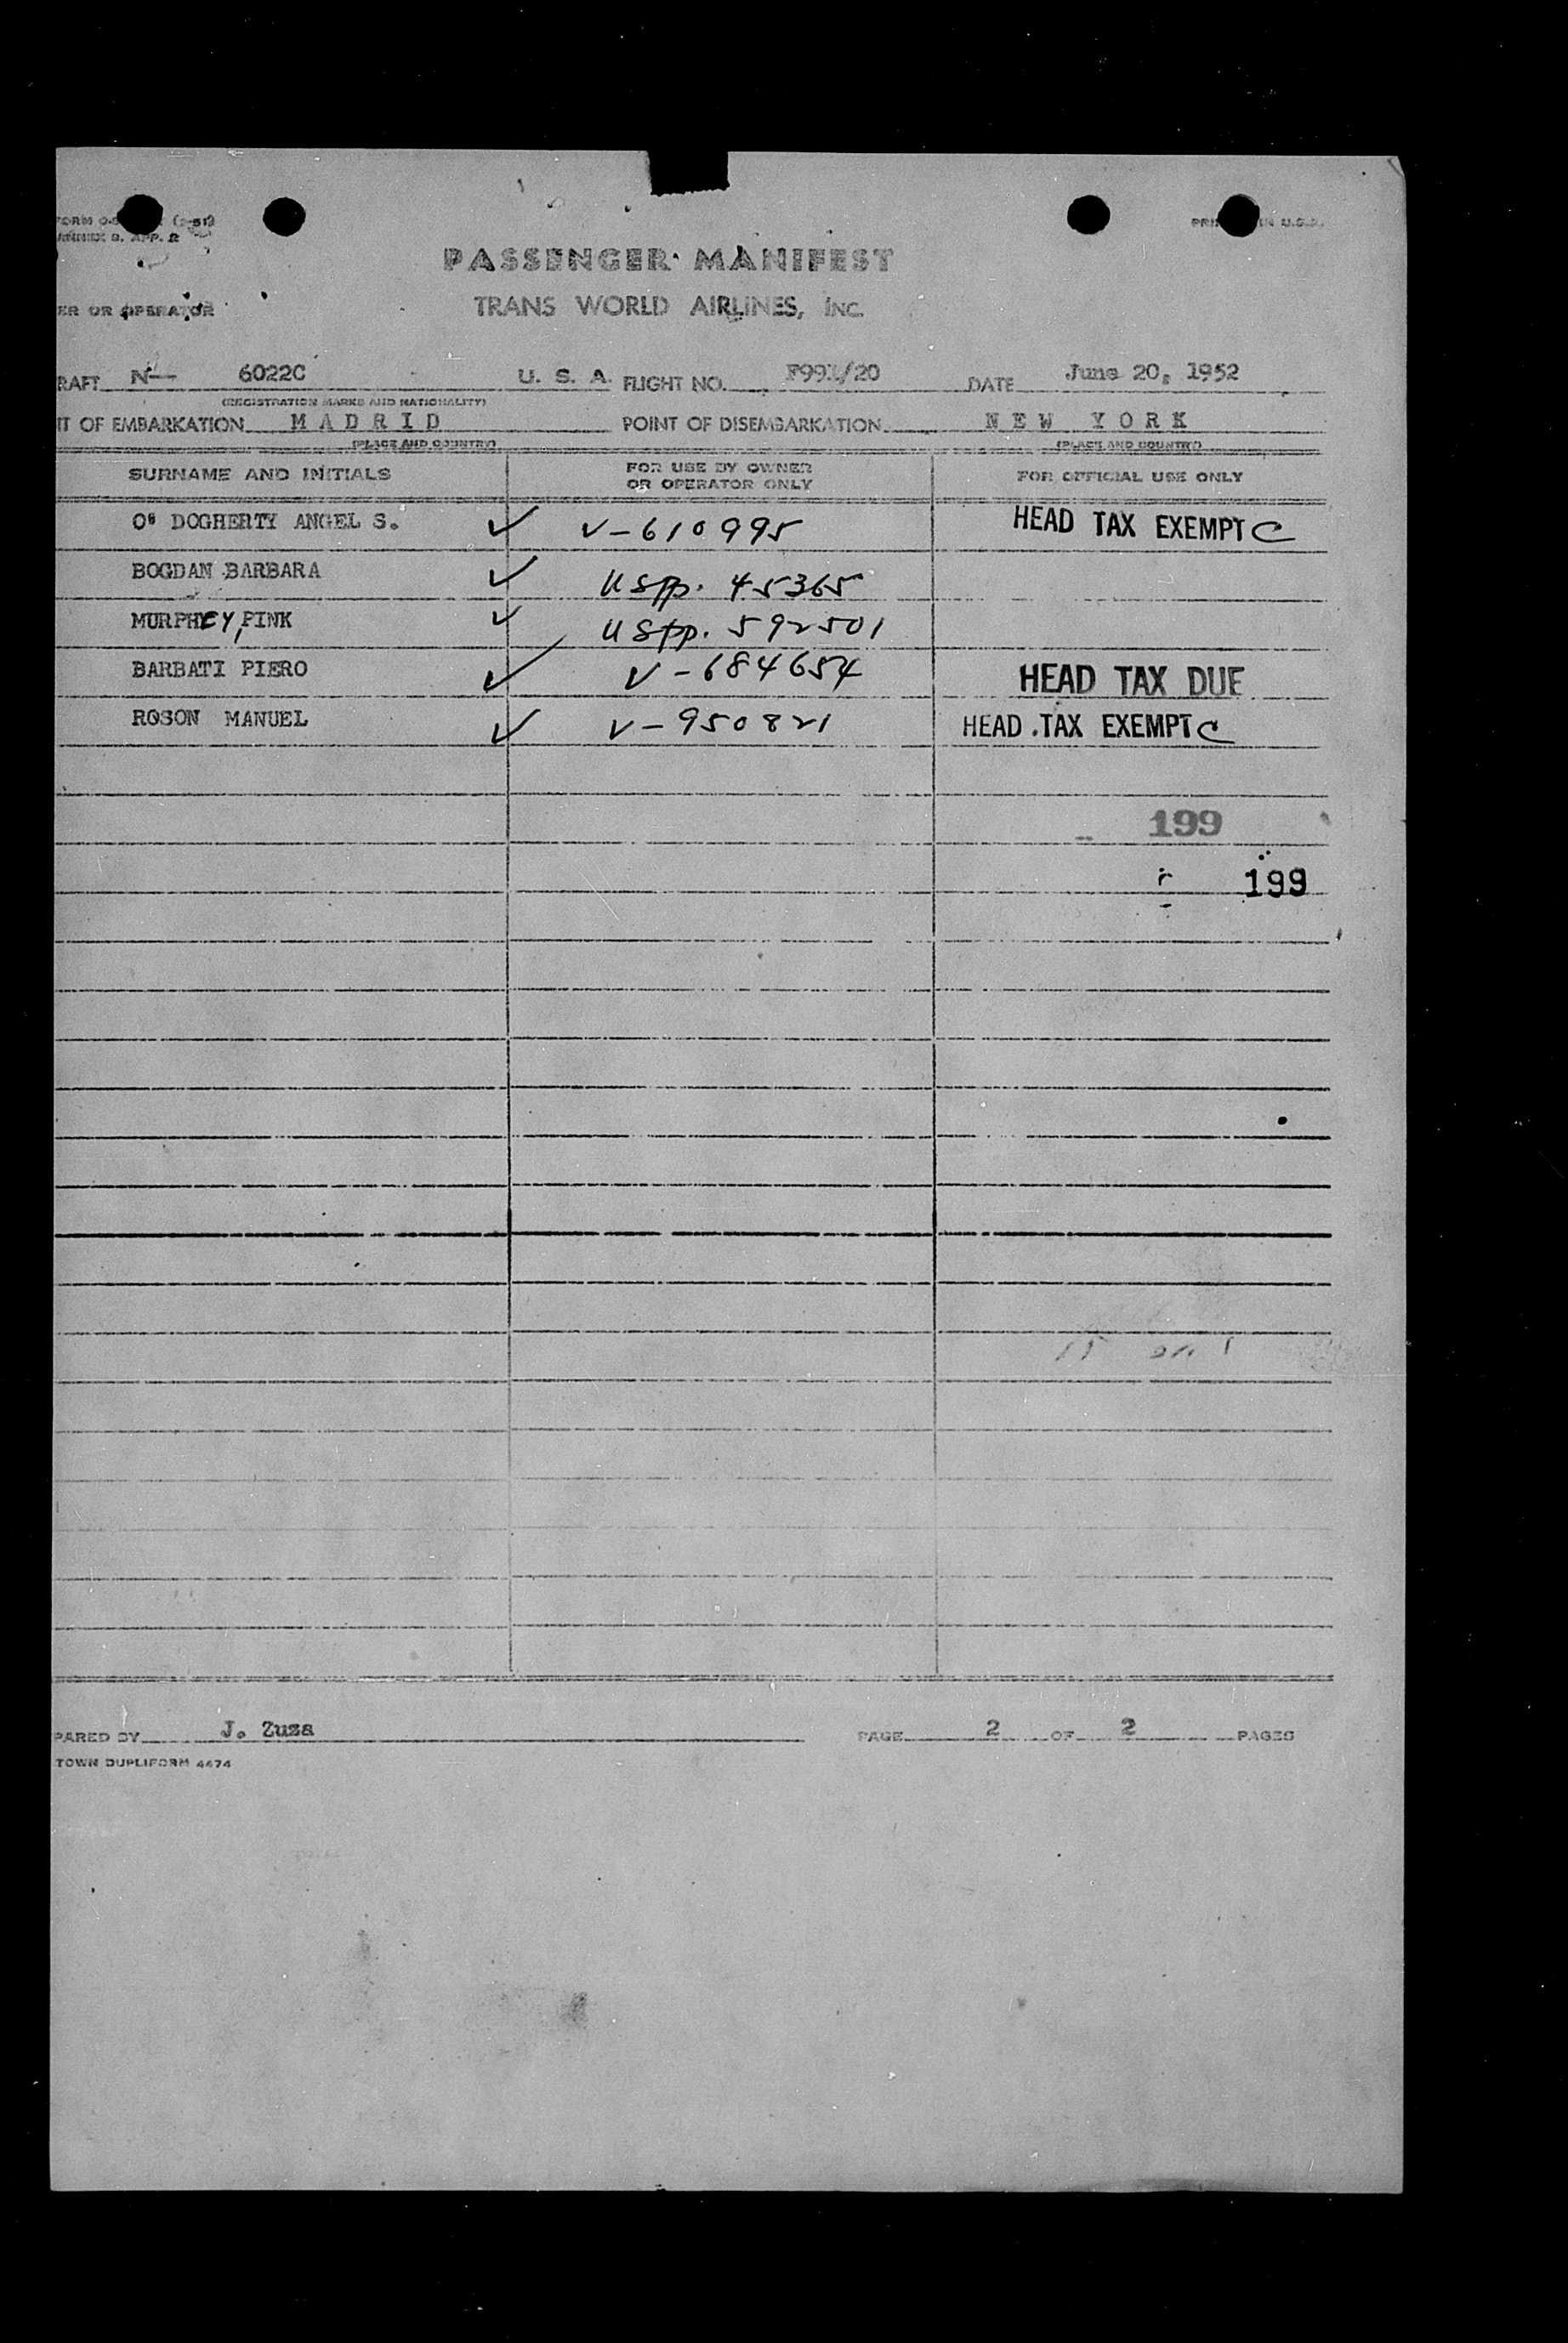 ANNEX 9. APP. 2
PASSENGER MANIFEST
TRANS WORLD AIRLINES, INC.
ER OR OPERATOR
RAFT N— 6022C U. S. A. FLIGHT NO. DATE June 20, 1952
(REGISTRATION MARKS AND NATIONALITY)
T OF EMBARKATION MADRID POINT OF DISEMBARKATION NEW YORK
(PLACE AND COUNTRY) (PLACE AND COUNTRY)
SURNAME AND INITIALS FOR USE BY OWNER OR OPERATOR ONLY FOR OFFICIAL USE ONLY
O' DOGHERTY ANGEL S. ✓ V-610995 HEAD TAX EXEMPT C
BOGDAN BARBARA ✓ USpp. 45365
MURPHEY, PINK ✓ USpp. 592501
BARBATI PIERO ✓ V-684654 HEAD TAX DUE
ROSON MANUEL ✓ V-950821 HEAD TAX EXEMPT C
199
199
PARED BY J. Zuza PAGE 2 OF 2 PAGES
TOWN DUPLIFORM 4474